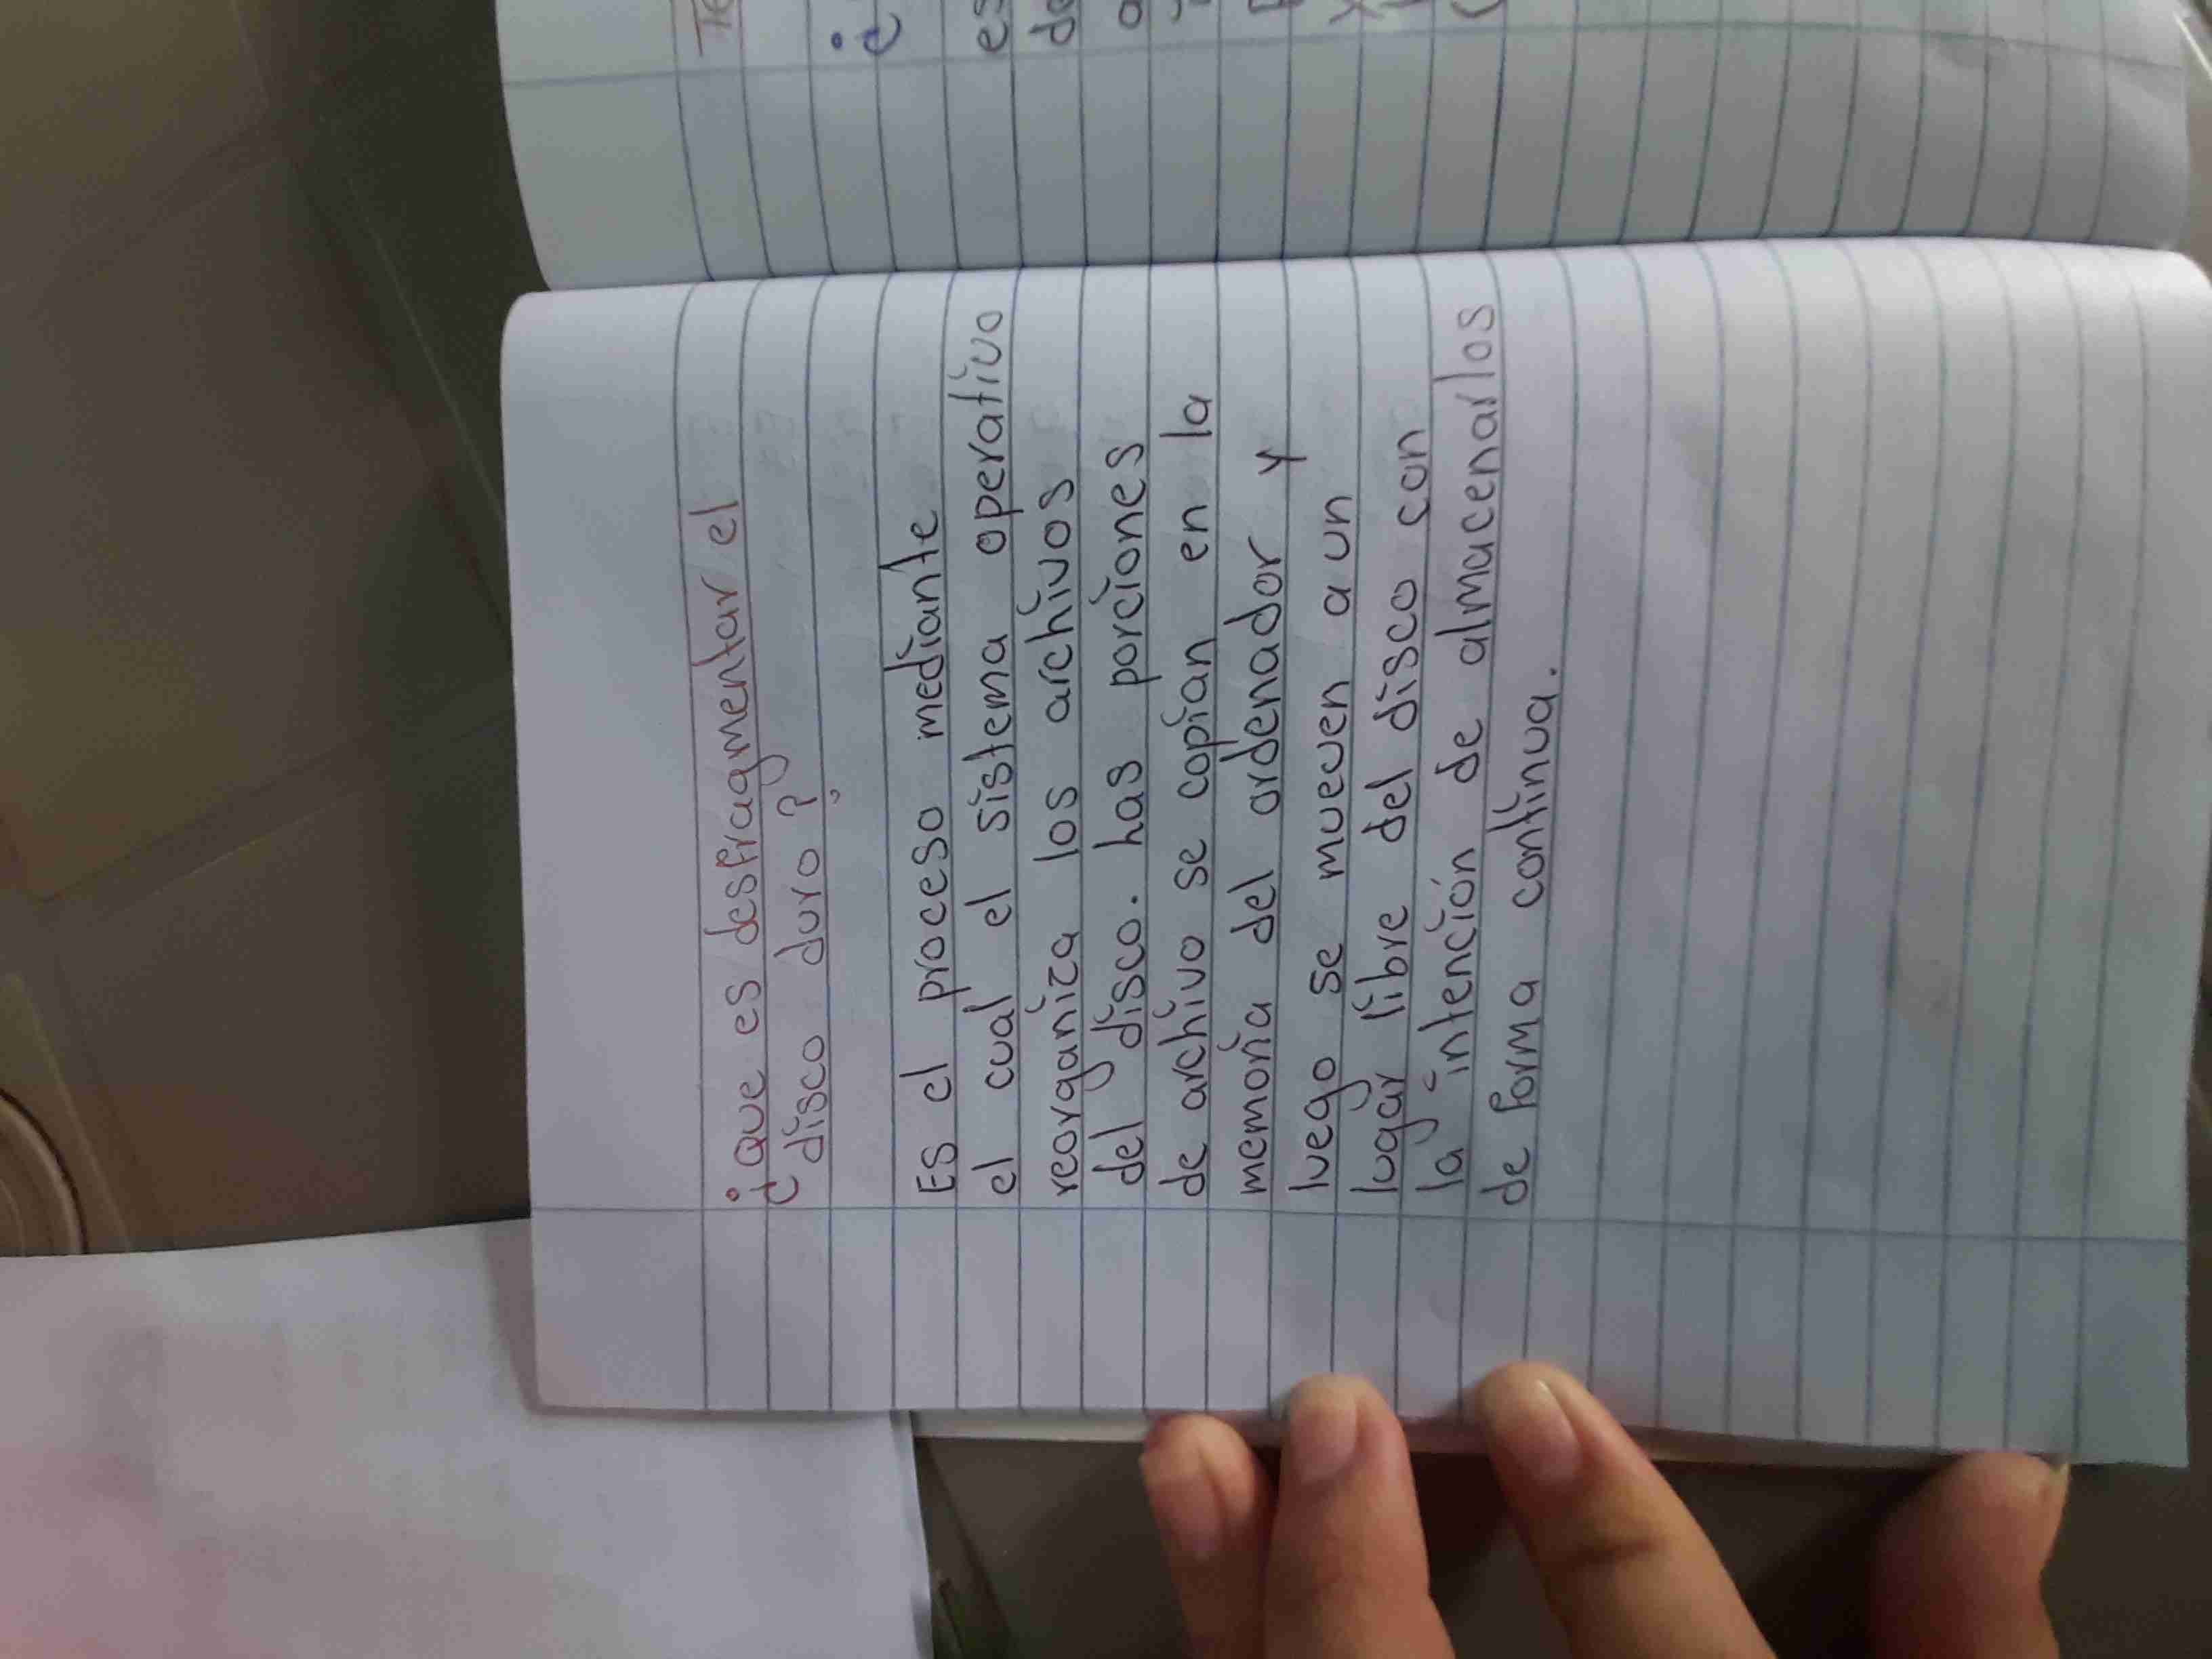 ¿Que es desfragmentar el
disco duro?
Es el proceso mediante
el cual el sistema operativo
reorganiza los archivos
del disco. has porciones
de archivo se copian en la
memoria del ordenador y
luego se mueven a un
lugar libre del disco con
la intención de almacenarlos
de forma continua.